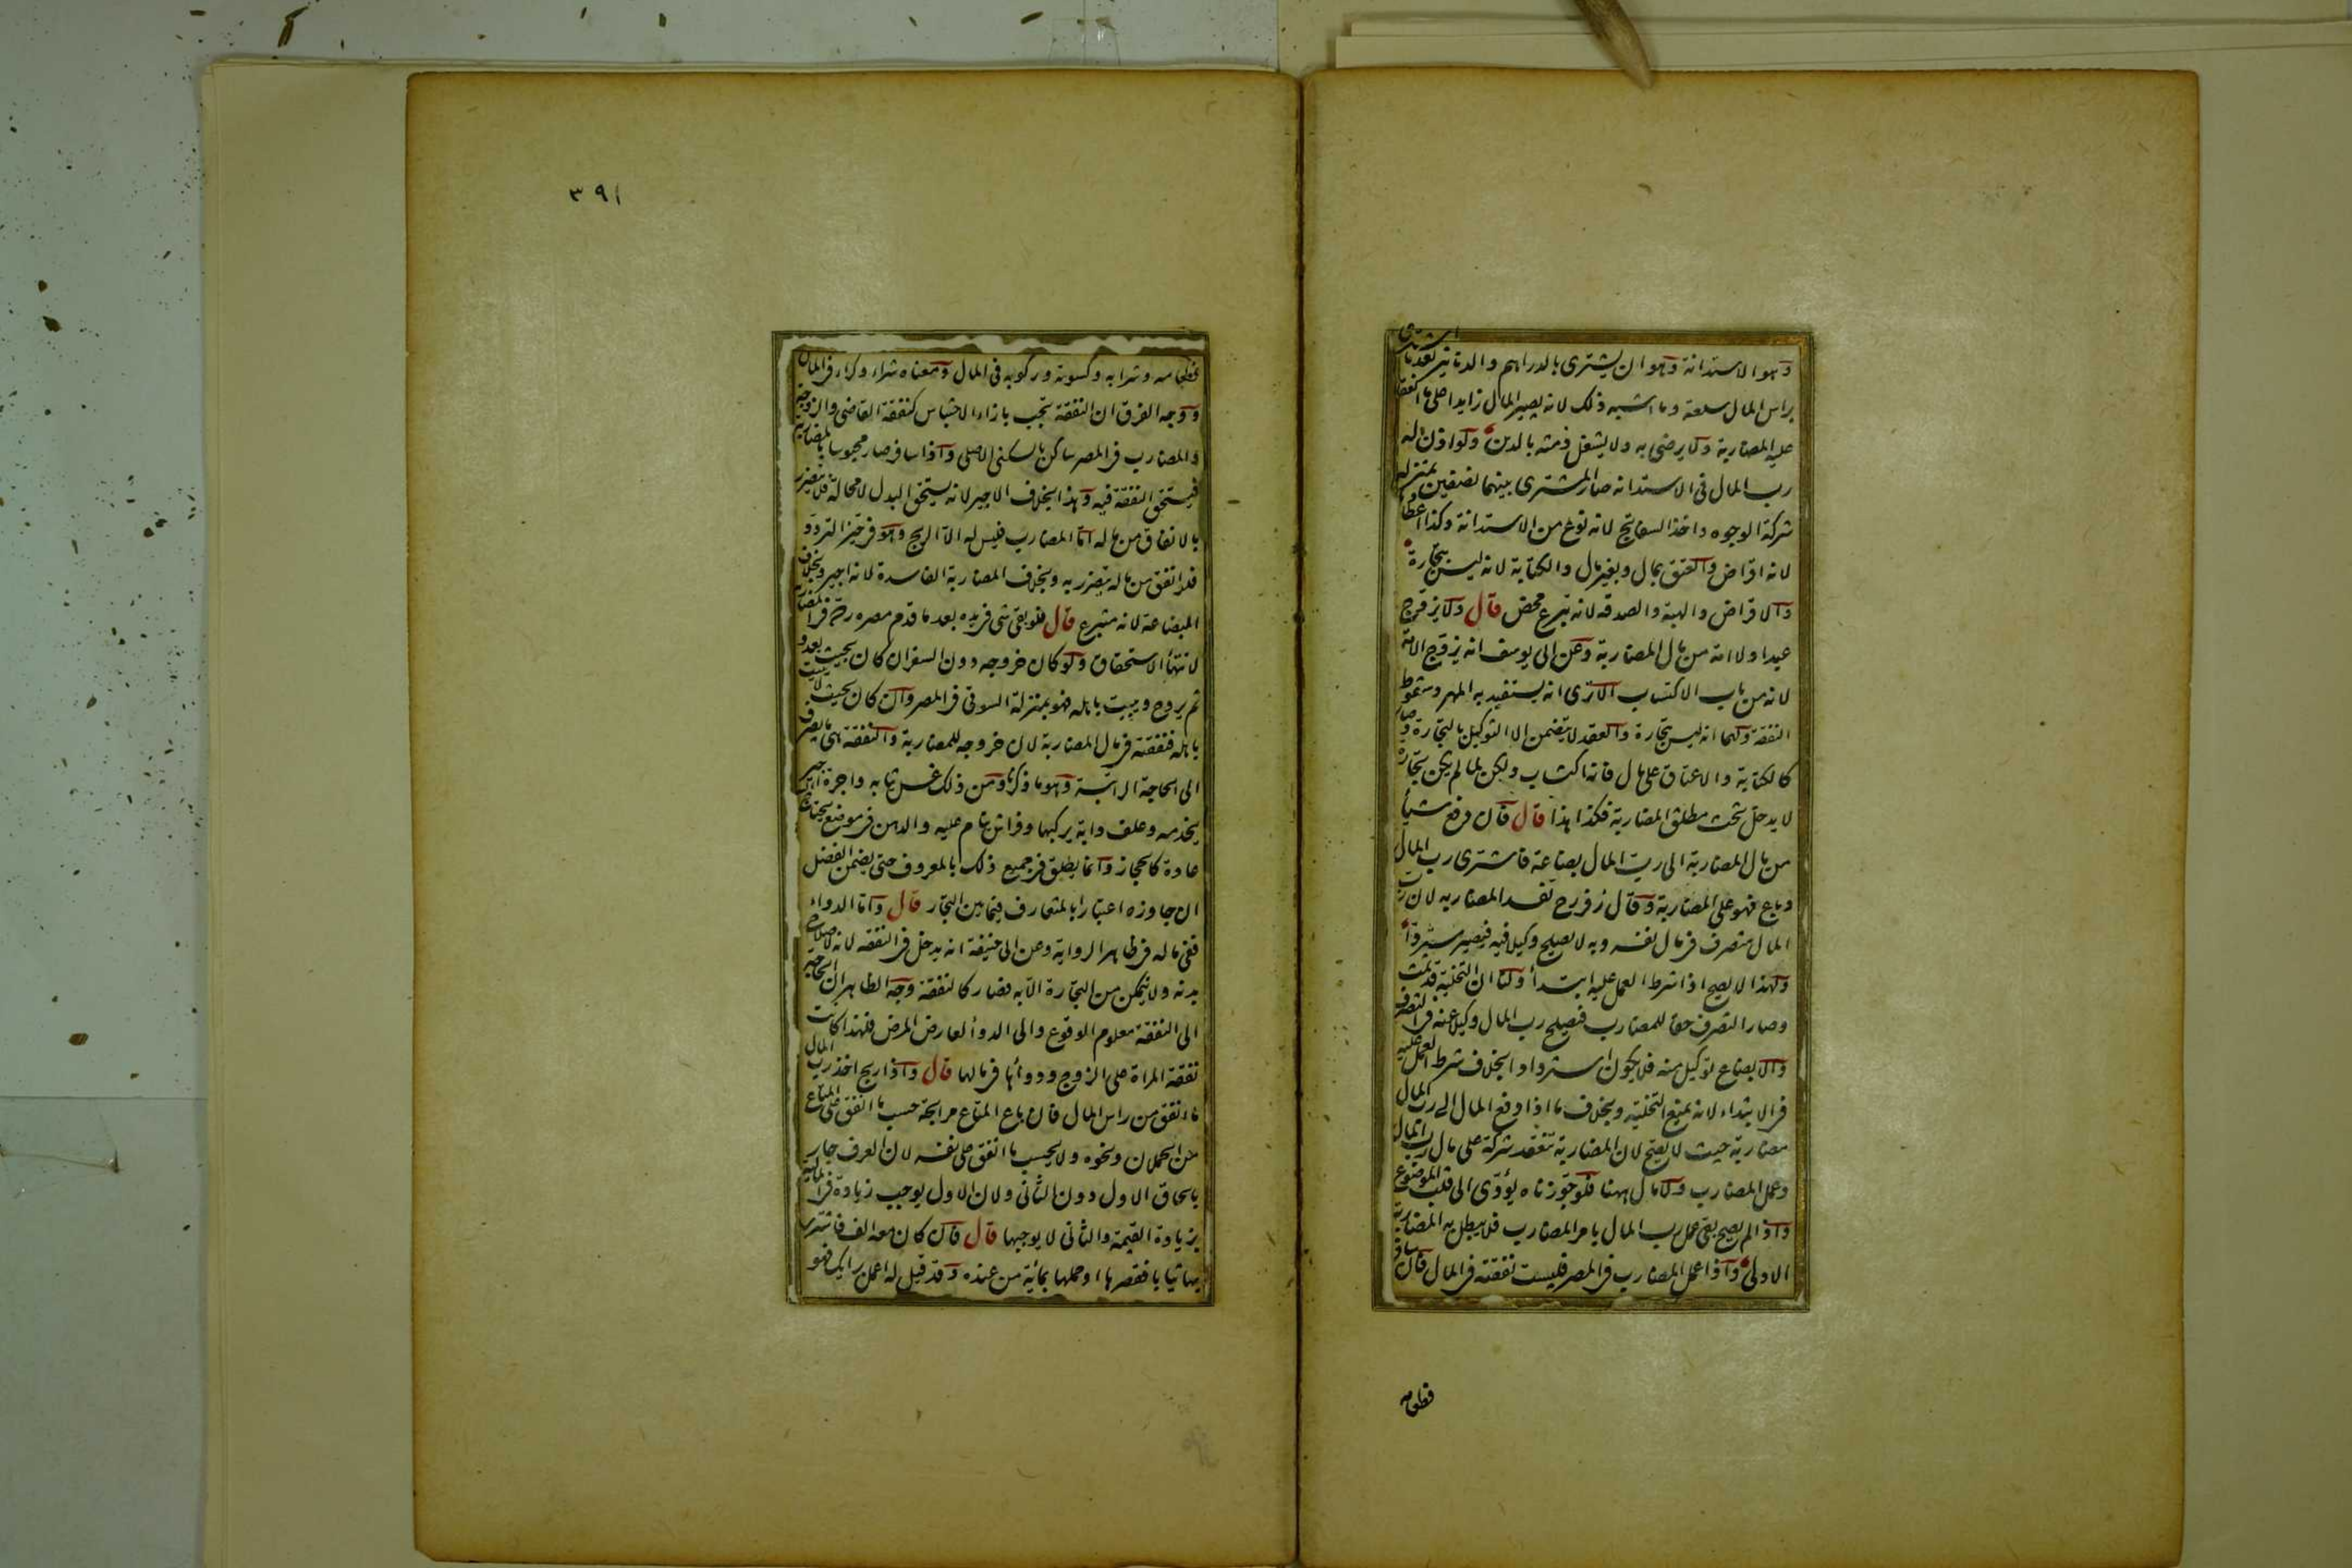 وهو الاستدانة وهو ان يشترى بالدراهم والدنانير بعد ما اشترى
براس المال سلعة وما اشبه ذلك لانه يصير المال زايدا على ما انعقد
عليه المضاربة ولا يرضى به ولا يشغل ذمته بالدين ولو اذن له
رب المال فى الاستدانة صار المشترى بينهما نصفين بمنزلة
شركة الوجوه واخذ السفاتج لانه نوع من الاستدانة وكذا اعطاؤها
لانه اقراض والعتق بمال وبغير مال والكتابة لانه ليس بتجارة
والاقراض والهبة والصدقه لانه تبرع محض قال ولا يزوج
عبدا ولا امة من مال المضاربة وعن ابى يوسف انه يزوج الامة
لانه من باب الاكتساب الا ترى انه يستفيد به المهر وسقوط
النفقة ولهما انه ليس بتجارة والعقد لا يتضمن الا التوكيل بالتجارة وصار
كالكتابة والاعتاق على مال فانه اكتساب ولكن لما لم يكن تجارة
لا يدخل تحت مطلق المضاربة فكذا هذا قال فان دفع شيأ
من مال المضاربة الى رب المال بضاعة فاشترى رب المال
وباع فهو على المضاربة وقال زفر رح تفسد المضاربه لان رب
المال متصرف فى مال نفسه وبه لا يصلح وكيلا فيه فيصير مستردا
ولهذا لا يصح اذا شرط العمل عليه ابتدأ ولنا ان التخلية قد تمت
وصار التصرف حقا للمضارب فيصلح رب المال وكيلا عنه فى التصرف
والابضاع توكيل منه فلا يكون استردادا بخلاف شرط العمل عليه
فى الابتداء لانه يمنع التخلية وبخلاف ما اذا دفع المال الى رب المال
مضاربة حيث لا يصح لان المضاربة تنعقد شركة على مال رب المال
وعمل المضارب ولا مال ههنا فلو جوزناه يؤدى الى قلب الموضوع
واذا لم يصح بقى عمل رب المال بامر المضارب فلا يبطل به المضاربة
الاولى واذا عمل المضارب فى المصر فليست نفقته فى المال فان سافر
فطعامه
٣٩١
فطعامه وشرابه وكسوته وركوبه فى المال ومعناه شراء وكراء فى المال
ووجه الفرق ان النفقة تجب بازاء الاحتباس كنفقة القاضى والزوجة
والمضارب فى المصر ساكن بالسكنى الاصلى واذا سافر صار محبوسا بالمضاربة
فيستحق النفقة فيه وهذا بخلاف الاجير لانه يستحق البدل لا محالة فلا يتضرر
بالانفاق من ماله اما المضارب فليس له الا الربح وهو فى حيز التردد
فلو انفق من ماله يتضرر به وبخلاف المضاربة الفاسدة لانه اجير وبخلاف
البضاعة لانه متبرع قال فلو بقى شى فى يده بعد ما قدم مصره رده فى المضاربة
لانتهأ الاستحقاق ولو كان خروجه دون السفر ان كان بحيث يغدو
ثم يروح ويبيت باهله فهو بمنزلة السوقى فى المصر وان كان بحيث لا يبيت
باهله فنفقته فى مال المضاربة لان خروجه للمضاربة والنفقة هى ما يصرف
الى الحاجة الراتبة وهو ما ذكرنا ومن ذلك غسل ثيابه واجرة اجير
يخدمه وعلف دابة يركبها وفراش ينام عليه والدهن فى موضع يحتاج
عادة كالحجاز وانما يطلق فى جميع ذلك بالمعروف حتى يضمن الفضل
ان جاوزه اعتبارا بالمتعارف فيما بين التجار قال واما الدواء
ففى ماله فى ظاهر الرواية وعن ابى حنيفة انه يدخل فى النفقه لانه لاصلاح
بدنه ولا يتمكن من التجارة الا به فصار كالنفقة وجه الظاهر ان الحاجة
الى النفقة معلوم الوقوع والى الدوأ لعارض المرض فلهذا كانت
نفقة المراة على الزوج ودوأها فى مالها قال واذا ربح اخذ رب المال
ما انفق من راس المال فان باع المتاع مرابحة حسب ما انفق على المتاع
من الحملان ونحوه ولا يحسب ما انفق على نفسه لان العرف جار
بالحاق الاول دون الثانى ولان الاول يوجب زيادة فى المالية
بزيادة القيمة والثانى لا يوجبها قال فان كان معه الف فاشترى
بها ثيابا فقصرها او حملها بمأئة من عنده وقد قيل له اعمل رايك فهو